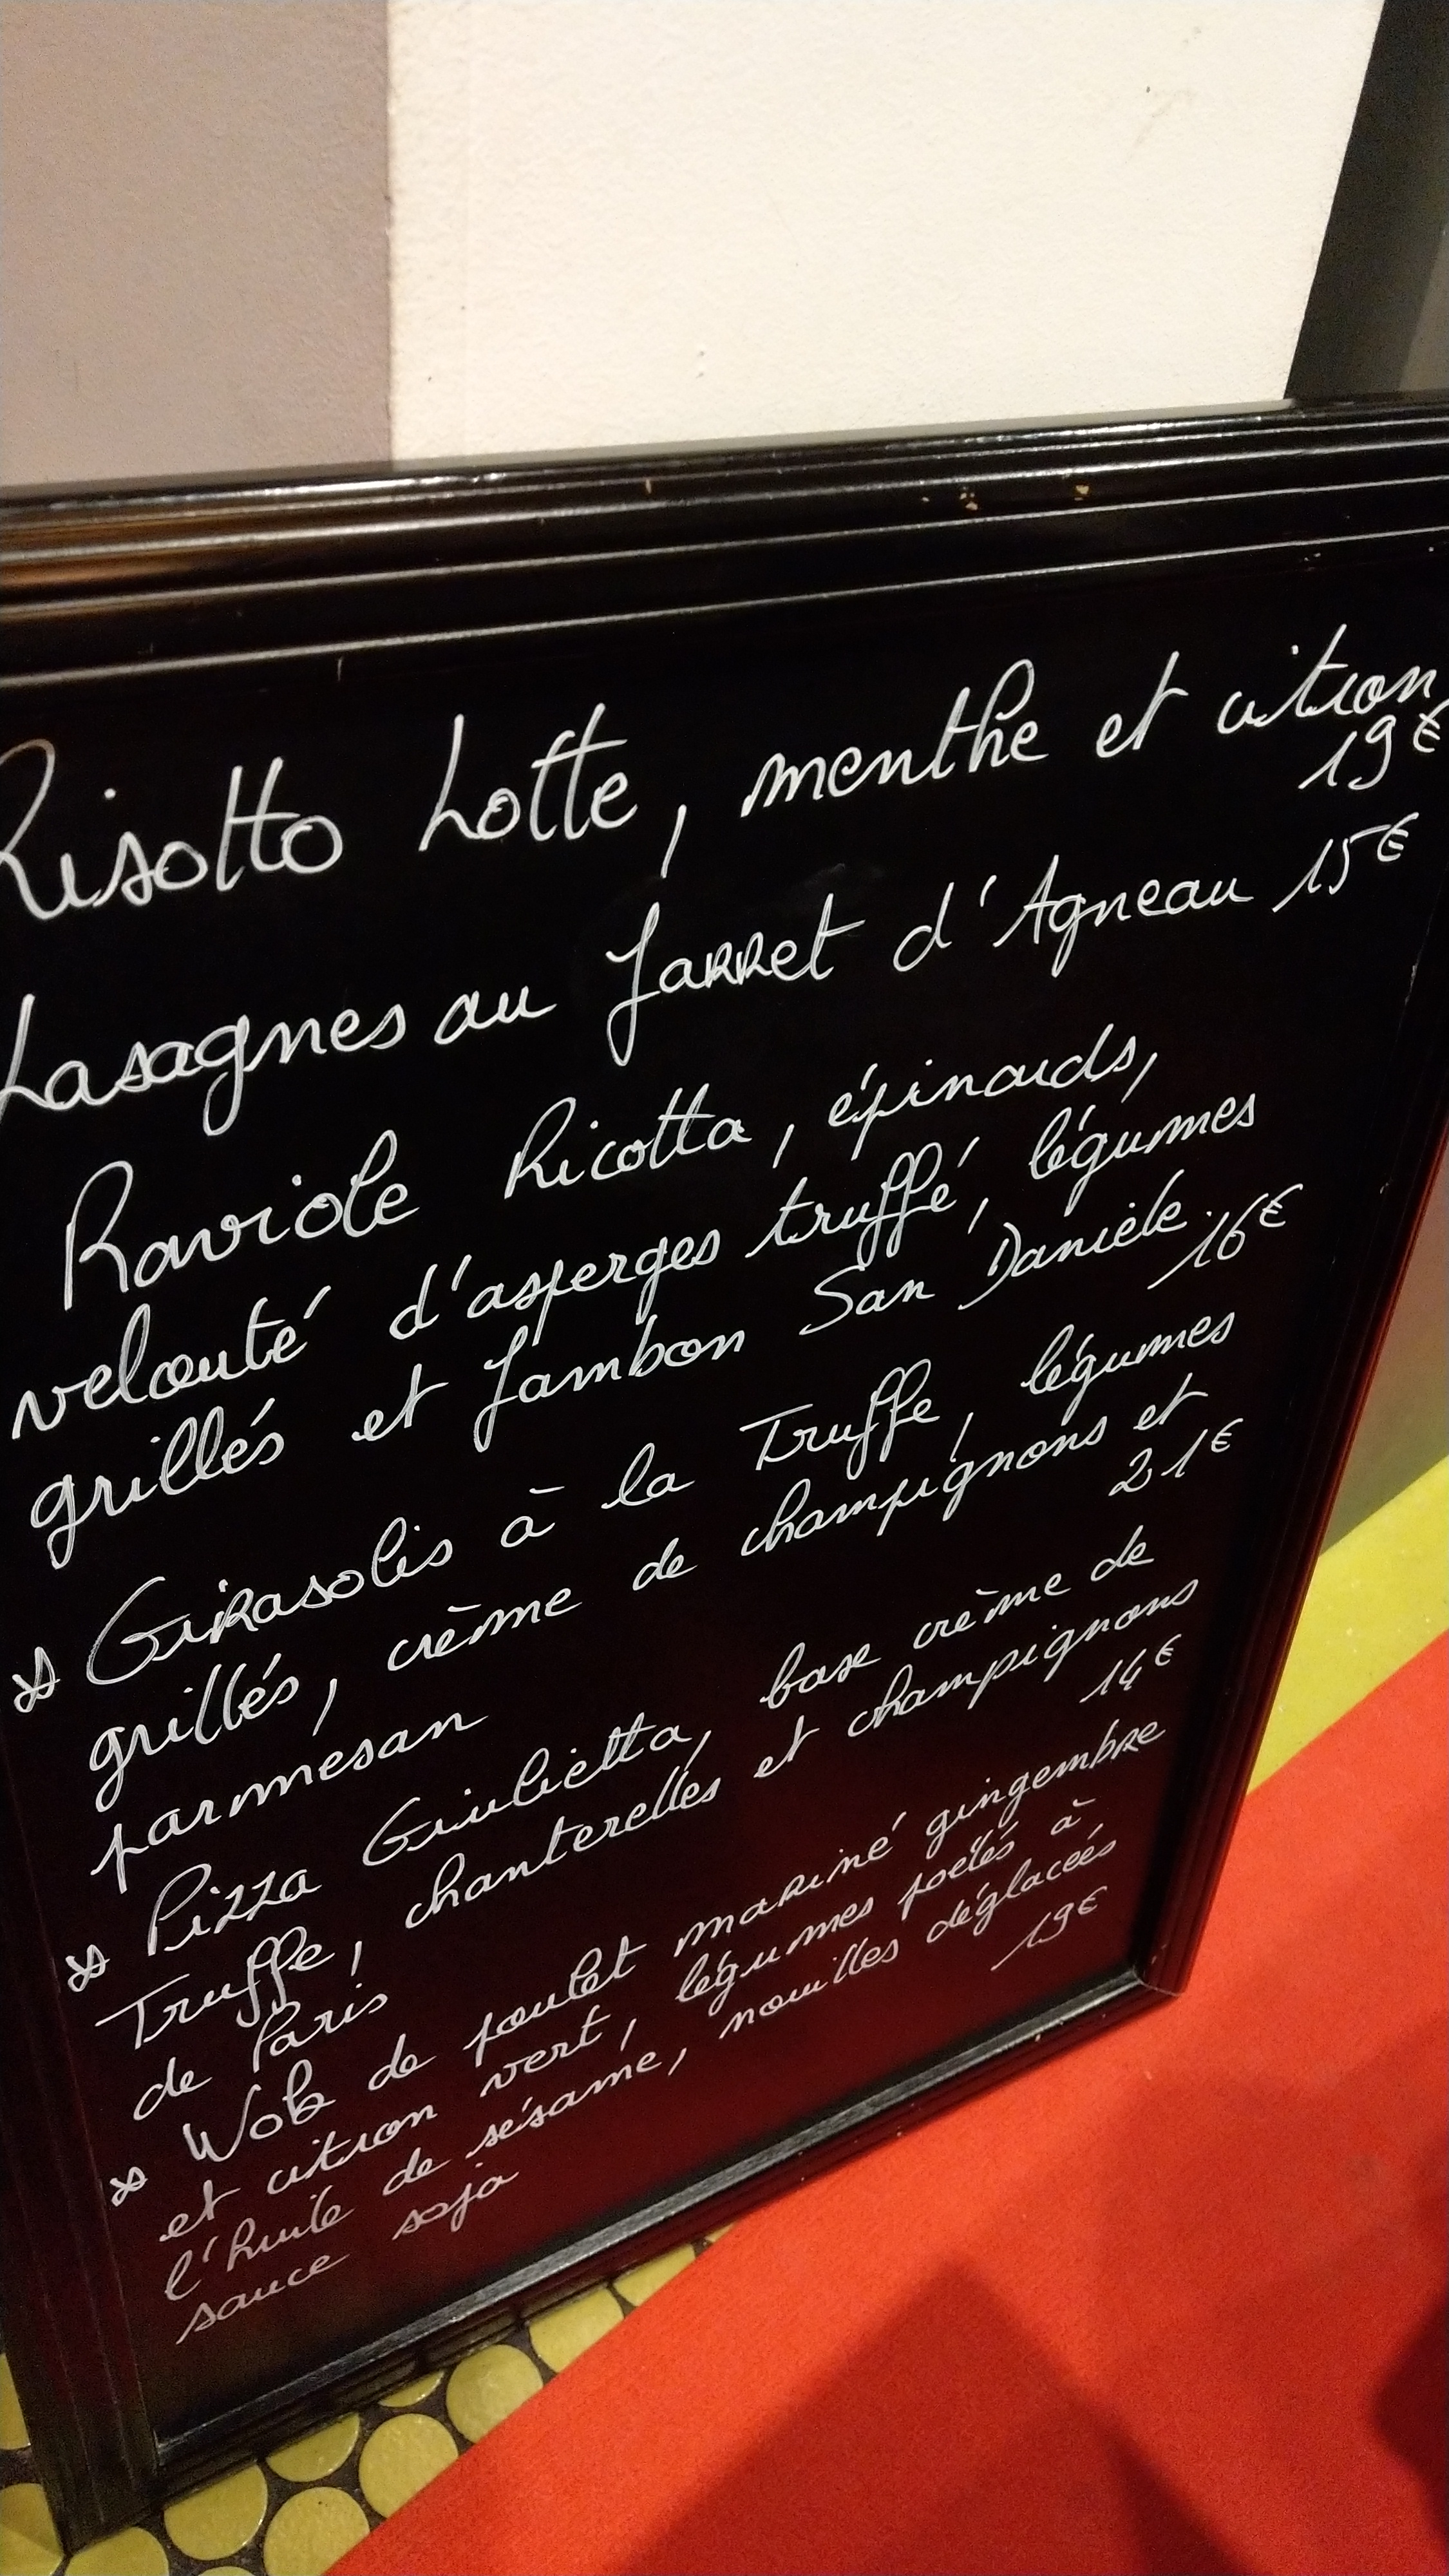 Risotto Lotte, menthe et citron
19€
Lasagnes au Jarret d'Agneau 15€
Raviole Ricotta, épinards,
velouté d'asperges truffé, légumes
grillés et Jambon San Danièle.
16€
* Girasolis à la Truffe, légumes
grillés, crème de champignons et
parmesan 21€
* Pizza Giulietta, base crème de
Truffe, chanterelles et champignons
de Paris 14€
* Wok de poulet mariné gingembre
et citron vert, légumes poélés à
l'huile de sésame, nouilles déglacées
sauce soja 19€